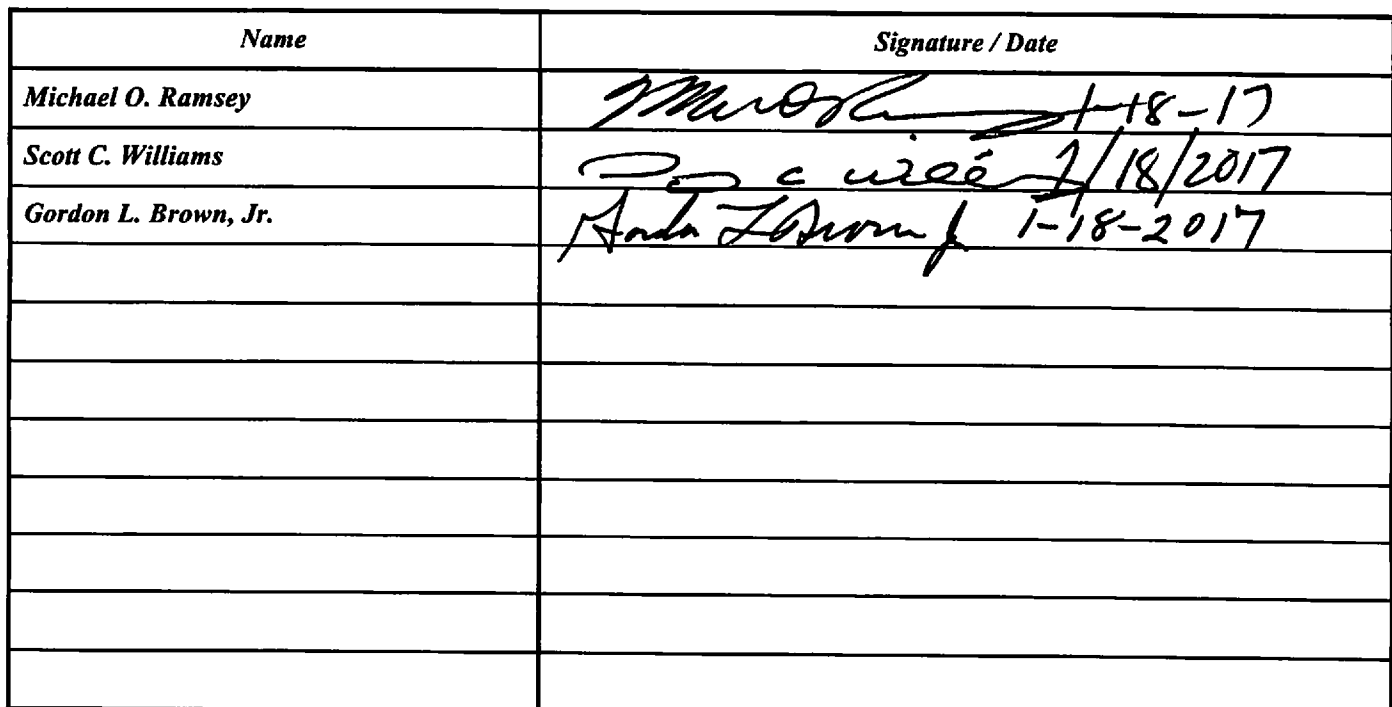 Name Signature / Date
Michael O. Ramsey 1-18-17
Scott C. Williams C 1/18/2017
Gordon L. Brown, Jr. Gordon L Brown Jr 1-18-2017